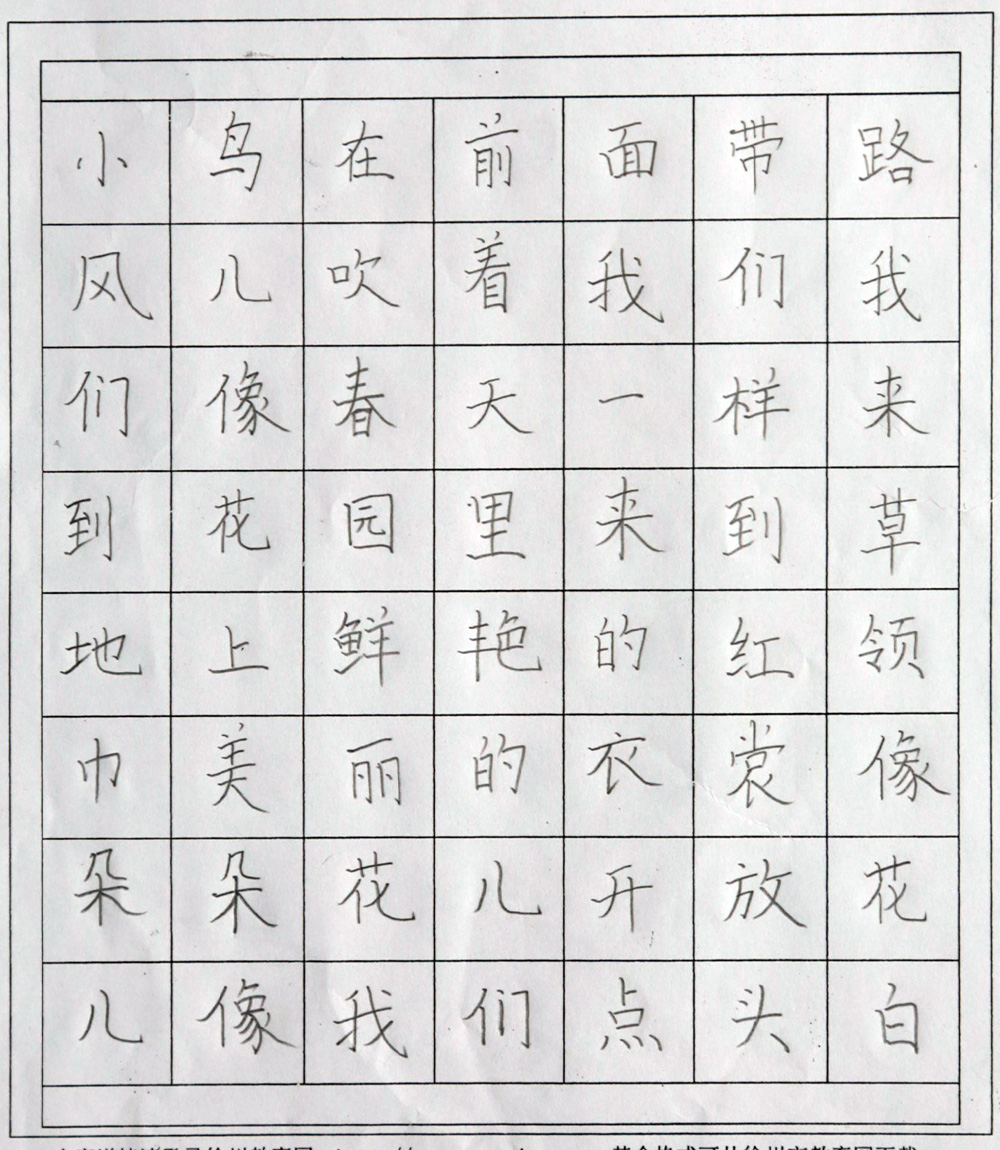 小鸟在前面带路
风儿吹着我们我
们像春天一样来
到花园里来到草
地上鲜艳的红领
巾美丽的衣裳像
朵朵花儿开放花
儿像我们点头白